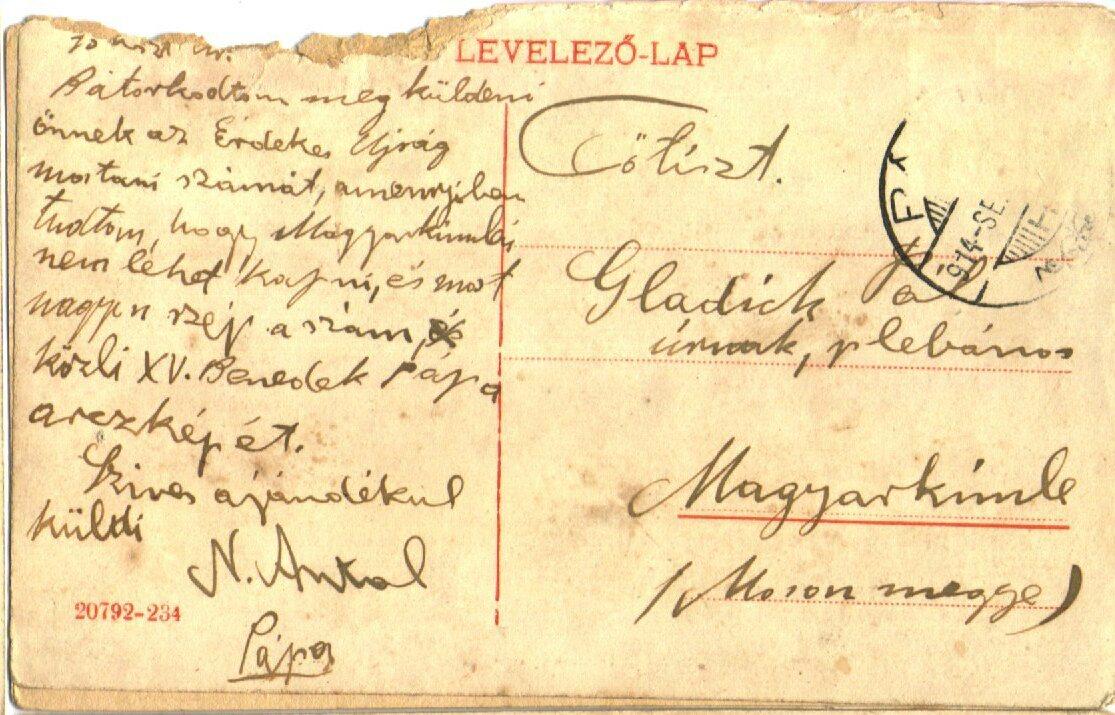 LEVELEZŐ-LAP
Bátorkodtom meg küldeni
önnek az Érdekes Ujság
mostani számát, amennyiben
tudtom, hogy Magyarkimlén
nem lehet kapni, és most
nagyon szép a szám,
közli XV. Benedek Pápa
arczképét.
Szives ajándékul
küldi
N. Antal
Pápa
20792-234
Főtiszt.
Gladich Pál
úrnak, plebános
Magyarkimle
(Moson megye)
914-SE